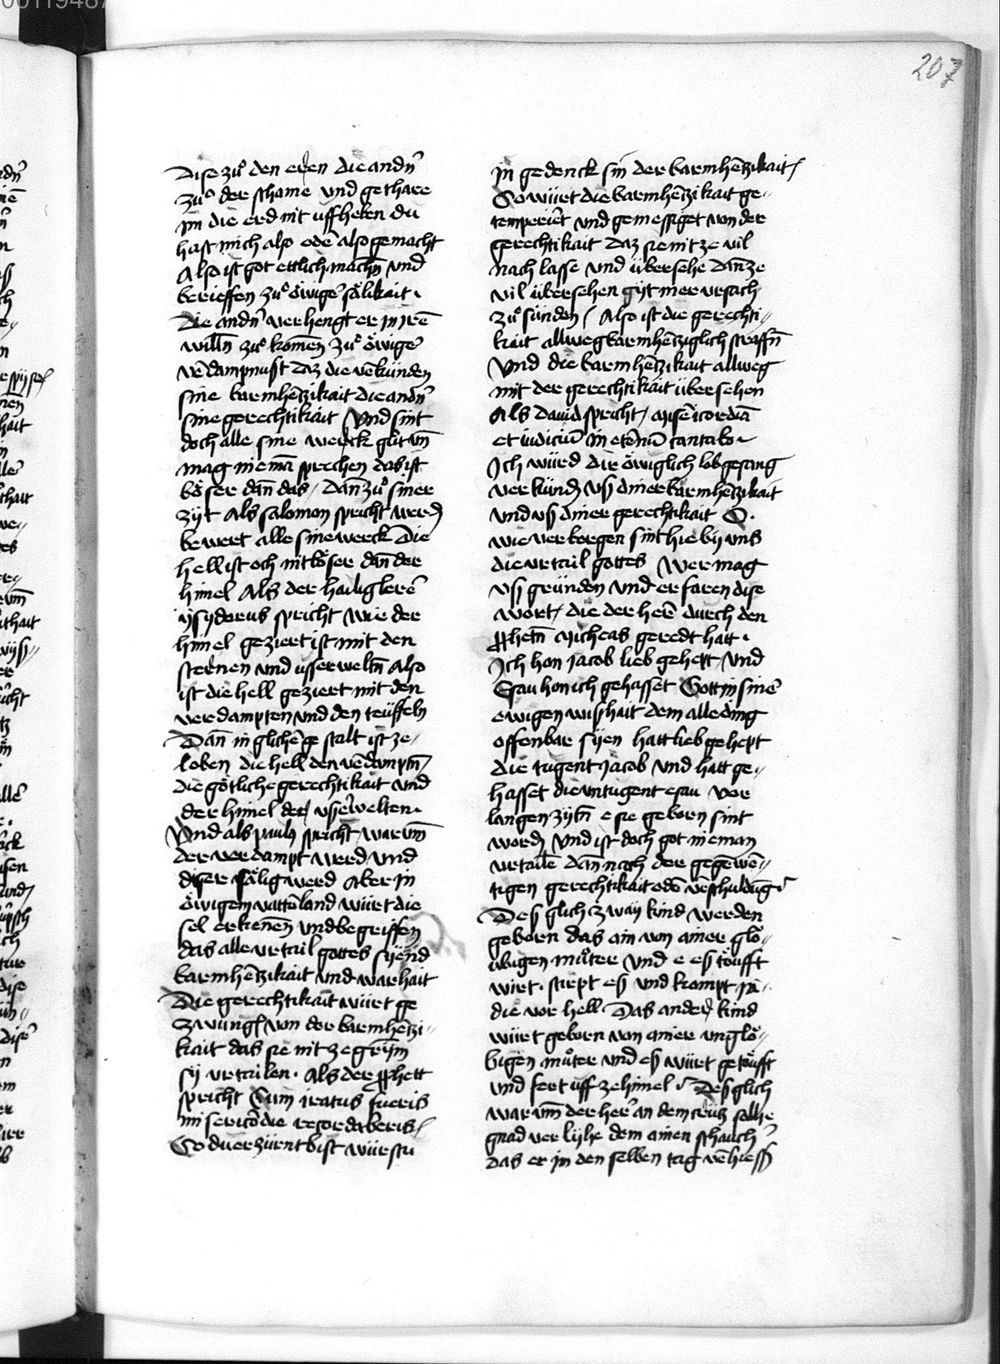 207
Dise zuͦ den eren die andn̄
zuͦ der schame und gethare
im die erd nit uffheben du
hast mich also oder also gemacht
Also ist got ettlich machn̄ und
berieffen zuͦ öwiger sälikait.
Die andn̄ verhengt er in irē
willn̄ zuͦ komen zuͦ öwiger
v̄dampnust daz die v̄kúnden
sine barmh̄tzikait die andn̄
sine gerechtikait Und sint
doch alle sine werck guͦt wn̄
mag niemā sprechen das ist
böser dān das / Dān zuͦ siner
zijt Als salomon spricht werdn̄
bewert alle sine werck Die
hell ist och nit böser dān der
himel Als der hailig lerer
ysydorus spricht wie der
himel geziert ist mit den
sternen und usserweltn̄ Also
ist die hell geziert mit den
verdampten und den teúffeln
Dān in glicher gestalt ist ze/
loben die hell den v̄damptn̄
die götliche gerechtikait und
der himel der usserwelten.
Und als paulus spricht warum̄
der verdampt werd und
diser sälig werd Aber in
öwigem vatterland wúrt die
sel erkenen und begriffen
das alle urtail gottes syend
barmh̄tzikait und warhait
Die gerechtikait wúrt ge
zwungē von der barmh̄tzi//
kait das sie nit ze grym̄
sy urtailen. Als der p̄phett
spricht Cum iratus fueris
misericordie recordaberis/
So du erzúrnt bist wúrstu
in gedenck sin der barmh̄tzikait/
So wúrt die barmh̄tzikait ge//
temperiert und gemessiget von der
gerechtikait daz sie nit ze vil
nach lasse und übersehe dān ze
vil übersehen gijt mer ursach
zuͦ súnden / Also ist die gerechti//
kait allweg barmh̄tziglich straffn̄
Und die barmh̄tzikait allweg
mit der gerechtikait übersehen
Als dauid spricht / Misericordiā
et iudiciū in eternū cantabo
Ich wúrd die öwiglich lobgesang
verkúndn̄ uß diner barmh̄tzikait
und uß diner gerechtikait O.
wie verborgen sint hie bij uns
die urtail gottes Wer mag
uß gründen und erfaren dise
wort / die der herr durch den
p̄phetn̄ Micheas geredt hatt.
Ich hon Jacob lieb gehett / Und
Esau hon ich gehasset Gott in siner
ewigen wißhait dem alle ding
offenbar syen hatt lieb gehept
die tugent Jacob und hatt ge//
hasset die untugent esau vor
langen zijtn̄ e sie geborn sint
wordn̄ Und ist doch got nieman
urtailē dān nach der gegewer//
tigen gerechtikait oder v̄schuldung
Deß glich zway kind werden
geborn das ain von ainer glö//
ubigen muͦter Und e eß töufft
wirt. stirpt eß und kompt in//
die vor hell. Das ander kind
wúrt geborn von ainer unglö//
bigen muͦter und eß wúrt getöufft
und fert uff ze himel Deß glich
warum̄ der her an dem crútz sölle
gnad verlijhe dem ainen schaucher
das er in den selben tag verhieß